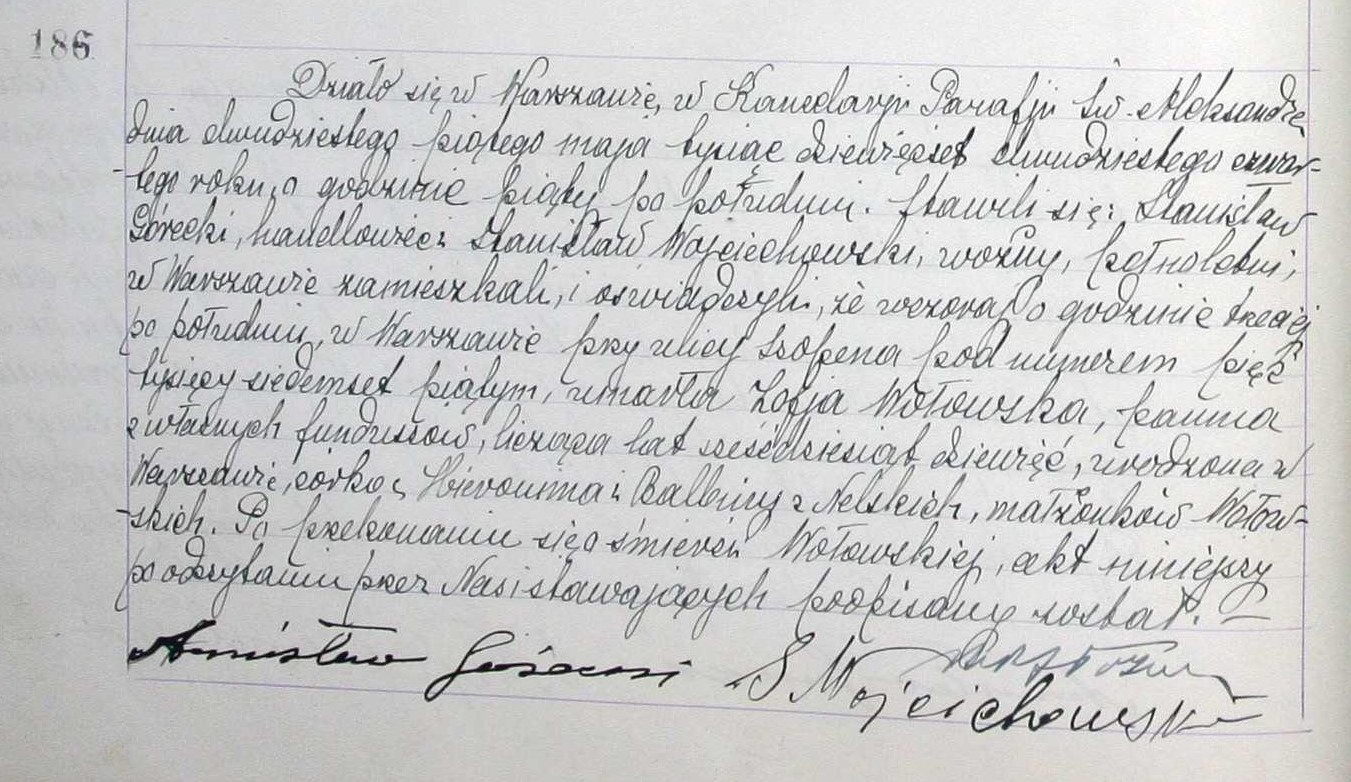 186
Działo się w Warszawie, w Kancelaryi Parafji Św. Aleksandra,
dnia dwudziestego piątego maja tysiąc dziewięćset dwudziestego czwar-
-tego roku, o godzinie piątej po południu. Stawili się: Stanisław
Górecki, handlowiec i Stanisław Wojciechowski, woźny, pełnoletni,
w Warszawie zamieszkali, i oświadczyli, że wczoraj o godzinie trzeciej
po południu, w Warszawie przy ulicy Szopena pod numerem pięć
tysięcy siedemset piątym, umarła Zofja Wołowska, panna
z własnych funduszów, licząca lat sześćdziesiąt dziewięć, urodzona w
Warszawie, córka Hieronima i Balbiny z Nelskich, małżonków Wołow-
-skich. Po przekonaniu się o śmierci Wołowskiej, akt niniejszy
po odczytaniu przez Nas i stawających podpisany został. —
Stanisław Górecki
S Wojciechowski